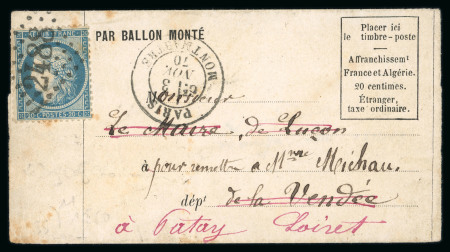 PAR BALLON MONTÉ
Placer ici
le timbre-poste
Affranchissemt
France et Algérie.
20 centimes.
Étranger,
taxe ordinaire.
20 C POSTES 20 C
PARIS
NOV.
70
MONTMARTRE
Monsieur
Le Maire de Luçon
à pour remettre à Mme Michau
dépt de la Vendée
à Patay Loiret